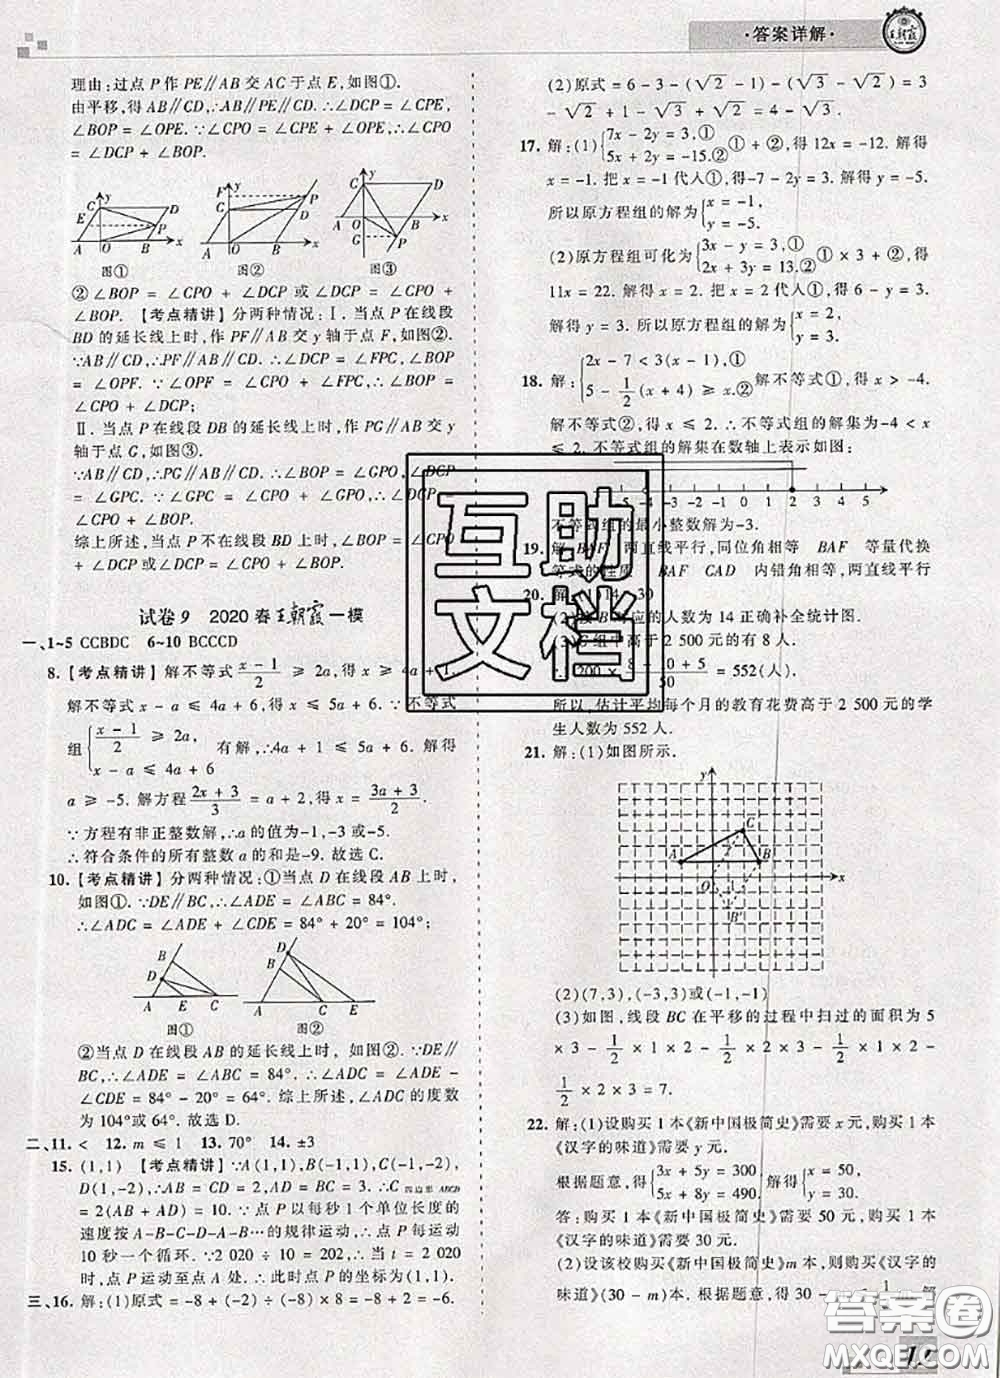 ·答案详解·
王朝霞
理由:过点 P 作 PE∥AB 交 AC 于点 E,如图①.
由平移,得 AB∥CD,∴AB∥PE∥CD.∴∠DCP = ∠CPE,
∠BOP = ∠OPE. ∵∠CPO = ∠CPE + ∠OPE,∴∠CPO
= ∠DCP + ∠BOP.
图① 图② 图③
②∠BOP = ∠CPO + ∠DCP 或∠DCP = ∠CPO +
∠BOP.【考点精讲】分两种情况:Ⅰ.当点 P 在线段
BD 的延长线上时,作 PF∥AB 交 y 轴于点 F,如图②.
∵AB∥CD,∴PF∥AB∥CD.∴∠DCP = ∠FPC,∠BOP
= ∠OPF. ∵∠OPF = ∠CPO + ∠FPC,∴∠BOP =
∠CPO + ∠DCP;
Ⅱ.当点 P 在线段 DB 的延长线上时,作 PG∥AB 交 y
轴于点 G,如图③.
∵AB∥CD,∴PG∥AB∥CD.∴∠BOP = ∠GPO,∠DCP
= ∠GPC. ∵∠GPC = ∠CPO + ∠GPO,∴∠DCP =
∠CPO + ∠BOP.
综上所述,当点 P 不在线段 BD 上时,∠BOP = ∠CPO +
∠DCP 或∠DCP = ∠CPO + ∠BOP.
试卷 9 2020 春王朝霞一模
一、1~5 CCBDC 6~10 BCCCD
8.【考点精讲】解不等式(x - 1)/2 ≥ 2a,得 x ≥ 4a + 1.
解不等式 x - a ≤ 4,得 x ≤ a + 4. ∵不等式
组{(x - 1)/2 ≥ 2a, x - a ≤ 4 有解,∴4a + 1 ≤ 5 + a. 解得
a ≥ -5. 解方程(2x + 3)/3 = a + 2,得 x = (3a + 3)/2.
∵方程有非正整数解,∴a 的值为-1,-3 或-5.
∴符合条件的所有整数 a 的和是-9. 故选 C.
10.【考点精讲】分两种情况:①当点 D 在线段 AB 上时,
如图①. ∵DE∥BC,∴∠ADE = ∠ABC = 84°.
∴∠ADC = ∠ADE + ∠CDE = 84° + 20° = 104°;
图① 图②
②当点 D 在线段 AB 的延长线上时,如图②. ∵DE∥
BC,∴∠ADE = ∠ABC = 84°. ∴∠ADC = ∠ADE -
∠CDE = 84° - 20° = 64°. 综上所述,∠ADC 的度数
为 104°或 64°. 故选 D.
二、11. < 12. m ≤ 1 13. 70° 14. ±3
15. (1,1) 【考点精讲】∵A(1,1),B(-1,1),C(-1,-2),
D(1,-2),∴AB = CD = 2,AD = BC = 3. ∴C四边形ABCD
= 2(AB + AD) = 10. ∵点 P 以每秒 1 个单位长度的
速度按 A-B-C-D-A-B…的规律运动,∴点 P 每运动
10 秒一个循环. ∵2 020 ÷ 10 = 202,∴当 t = 2 020
时,点 P 运动至点 A 处. ∴此时点 P 的坐标为(1,1).
三、16. 解:(1)原式 = -8 + (-2) ÷ (-8) × 8 = -8 + 2 = -6.
(2)原式 = 6 - 3 - (√2 - 1) - (√3 - √2) = 3
- √2 + 1 - √3 + √2 = 4 - √3.
17. 解:(1){7x - 2y = 3,① 5x + 2y = -15.② ① + ②,得 12x = -12. 解得
x = -1. 把 x = -1 代人①,得-7 - 2y = 3. 解得 y = -5.
所以原方程组的解为{x = -1, y = -5.
(2)原方程组可化为{3x - y = 3,① 2x + 3y = 13.② ① × 3 + ②,得
11x = 22. 解得 x = 2. 把 x = 2 代人①,得 6 - y = 3.
解得 y = 3. 所以原方程组的解为{x = 2, y = 3.
18. 解:{2x - 7 < 3(x - 1),① 5 - 1/2(x + 4) ≥ x.② 解不等式①,得 x > -4.
解不等式②,得 x ≤ 2. ∴不等式组的解集为-4 < x
≤ 2. 不等式组的解集在数轴上表示如图:
-5 -4 -3 -2 -1 0 1 2 3 4 5
不等式组的最小整数解为-3.
19. 解:BAF 两直线平行,同位角相等 BAF 等量代换
等式的性质 BAF CAD 内错角相等,两直线平行
20. 解:(1)14 30
应的人数为 14 正确补全统计图.
组中高于 2 500 元的有 8 人.
200 × (8 + 10 + 5)/50 = 552(人)
所以,估计平均每个月的教育花费高于 2 500 元的学
生人数为 552 人.
21. 解:(1)如图所示.
(2)(7,3),(-3,3)或(-1,-1)
(3)如图,线段 BC 在平移的过程中扫过的面积为 5
× 3 - 1/2 × 1 × 2 - 1/2 × 2 × 3 - 1/2 × 1 × 2 -
1/2 × 2 × 3 = 7
22. 解:(1)设购买 1 本《新中国极简史》需要 x 元,购买 1 本
《汉字的味道》需要 y 元.
根据题意,得{3x + 5y = 300, 5x + 8y = 490. 解得{x = 50, y = 30.
答:购买 1 本《新中国极简史》需要 50 元,购买 1 本
《汉字的味道》需要 30 元.
(2)设该校购买《新中国极简史》m 本,则购买《汉字的
味道》(30 - m)本. 根据题意,得 30 - m
互助文档
答案圈
MXQE.COM